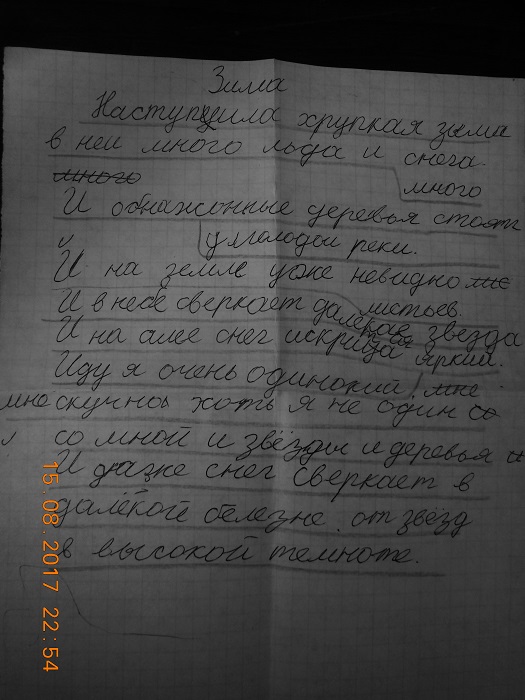 Зима
Наступщила хрупкая зыма
в ней много льда и снега.
много
много
И обнажонные деревья стоять
у холодой реки.
И на земле уже невидно
листьев.
И в небе сверкает далёкая звезда
И на алее снег искрица яркий.
Иду я очень одинокий, мне
мне скучной хоть я не один со
со мной и звёзды и деревья и
И даже снег сверкает в
далёкой белезне от звёзд
в высокой темноте.
15.08.2017 22:54